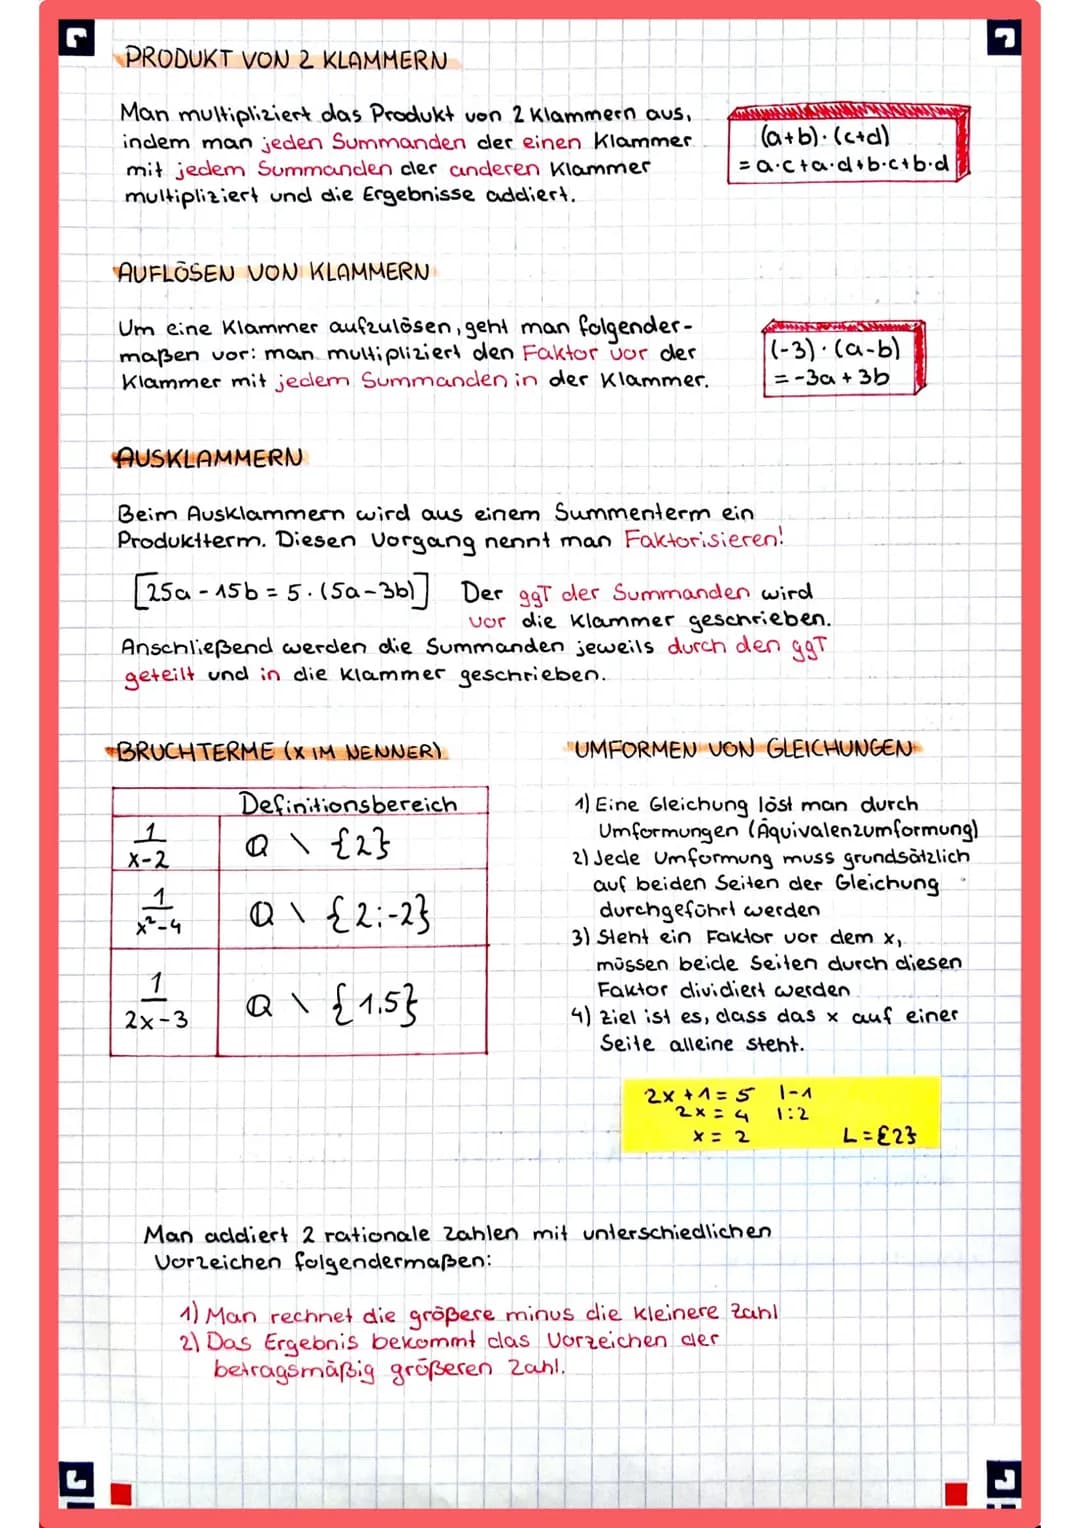 PRODUKT VON 2 KLAMMERN
Man multipliziert das Produkt von 2 Klammern aus,
indem man jeden Summanden der einen Klammer
mit jedem Summanden der anderen Klammer
multipliziert und die Ergebnisse addiert.
(a+b)·(c+d)
=a·c+a·d+b·c+b·d
AUFLÖSEN VON KLAMMERN
Um eine Klammer aufzulösen, geht man folgender-
maßen vor: man multipliziert den Faktor vor der
Klammer mit jedem Summanden in der Klammer.
(-3)·(a-b)
=-3a+3b
AUSKLAMMERN
Beim Ausklammern wird aus einem Summenterm ein
Produktterm. Diesen Vorgang nennt man Faktorisieren!
[25a-15b=5·(5a-3b)] Der ggT der Summanden wird
vor die Klammer geschrieben.
Anschließend werden die Summanden jeweils durch den ggT
geteilt und in die Klammer geschrieben.
BRUCHTERME (X IM NENNER)
Definitionsbereich
1
x-2
Q \ {2}
1
x²-4
Q \ {2;-2}
1
2x-3
Q \ {1,5}
UMFORMEN VON GLEICHUNGEN
1) Eine Gleichung löst man durch
Umformungen (Äquivalenzumformung)
2) Jede Umformung muss grundsätzlich
auf beiden Seiten der Gleichung
durchgeführt werden
3) Steht ein Faktor vor dem x,
müssen beide Seiten durch diesen
Faktor dividiert werden
4) Ziel ist es, dass das x auf einer
Seite alleine steht.
2x+1=5 |-1
2x=4 |:2
x=2 L={2}
Man addiert 2 rationale Zahlen mit unterschiedlichen
Vorzeichen folgendermaßen:
1) Man rechnet die größere minus die kleinere Zahl
2) Das Ergebnis bekommt das Vorzeichen der
betragsmäßig größeren Zahl.